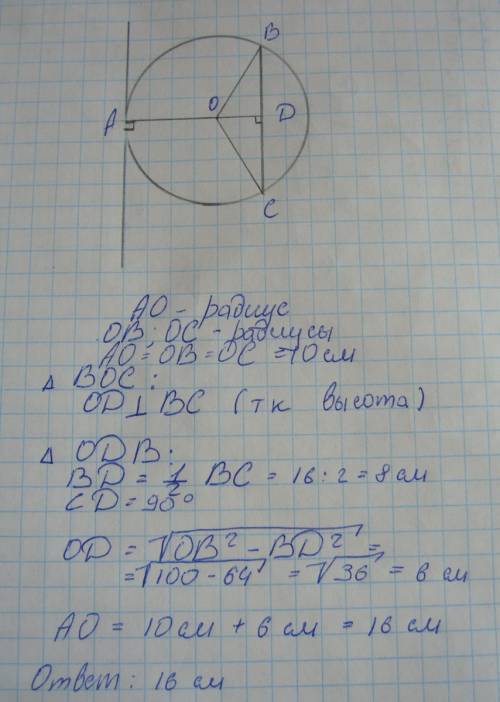 B
A O D
C
AO - радиус
OB; OC - радиусы
AO = OB = OC = 10 см
Δ BOC:
OD ⊥ BC (т к высота)
Δ ODB:
BD = 1/2 BC = 16 : 2 = 8 см
∠D = 90°
OD = √OB² - BD² =
= √100 - 64 = √36 = 6 см
AO = 10 см + 6 см = 16 см
Ответ: 16 см